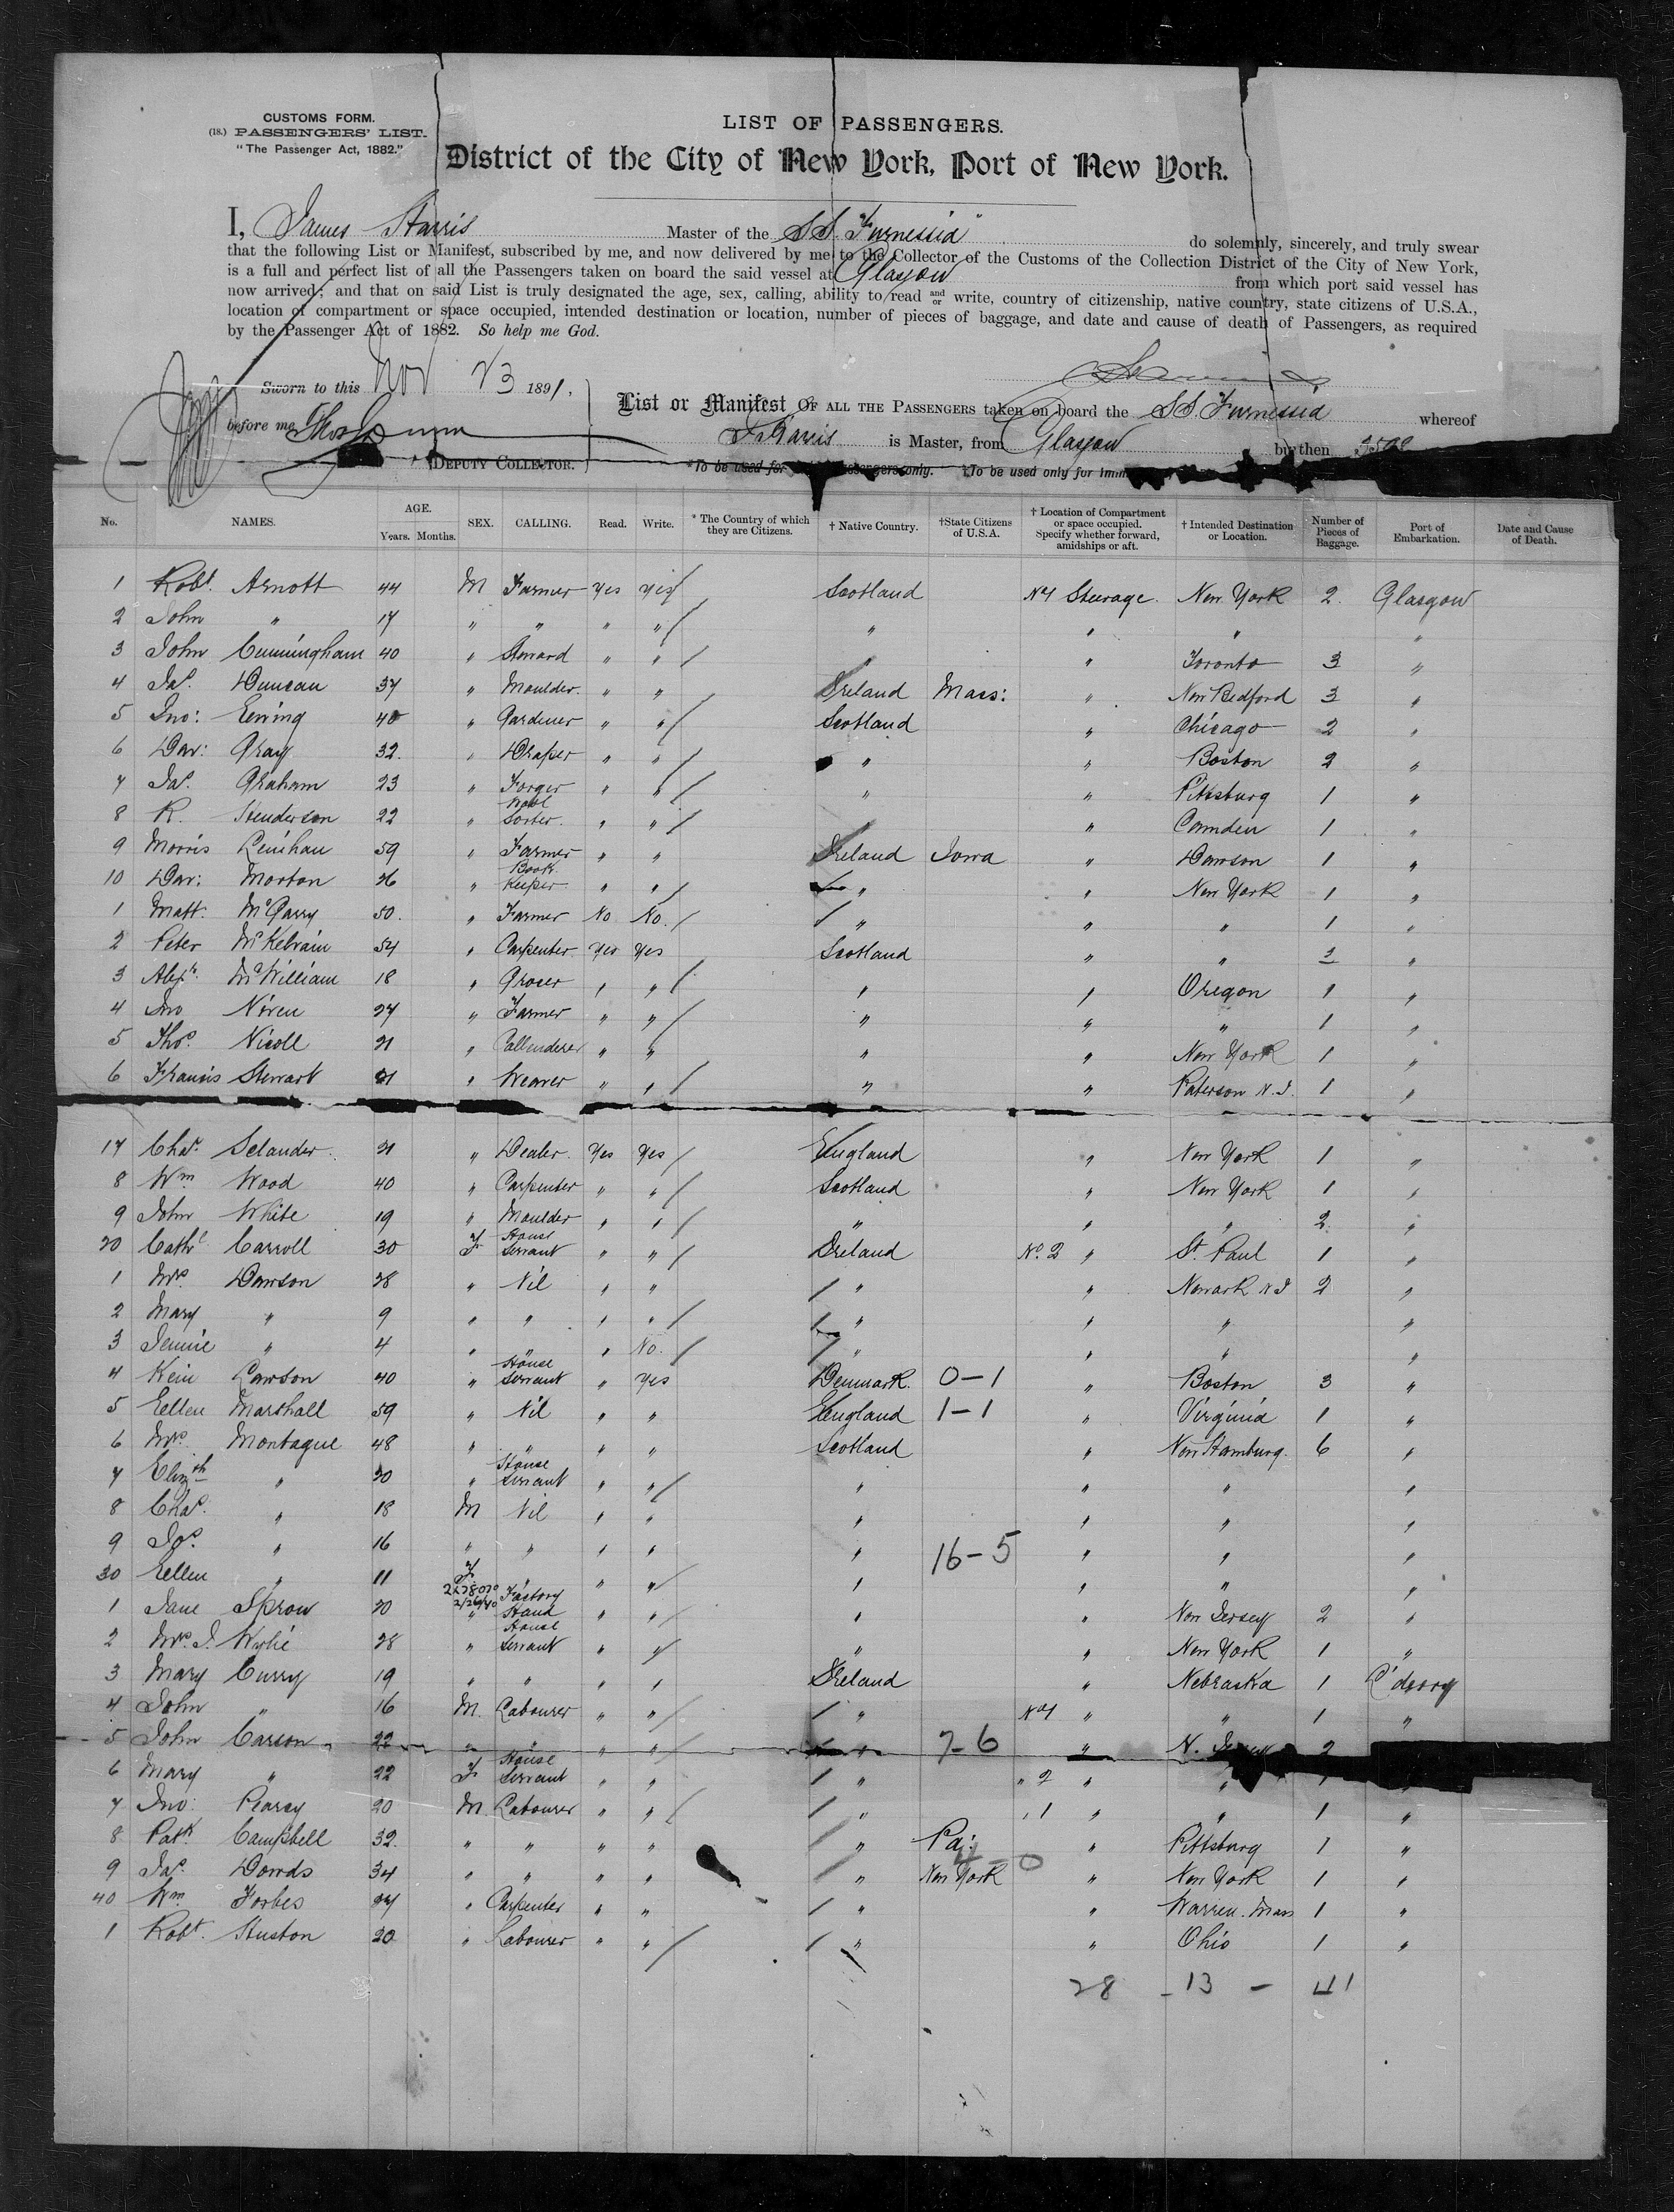 CUSTOMS FORM.
(18.) PASSENGERS' LIST.
"The Passenger Act, 1882."
LIST OF PASSENGERS.
District of the City of New York, Port of New York.
I, James Harris Master of the S.S. "Furnessia" do solemnly, sincerely, and truly swear
that the following List or Manifest, subscribed by me, and now delivered by me to the Collector of the Customs of the Collection District of the City of New York,
is a full and perfect list of all the Passengers taken on board the said vessel at Glasgow from which port said vessel has
now arrived; and that on said List is truly designated the age, sex, calling, ability to read and or write, country of citizenship, native country, state citizens of U.S.A.,
location of compartment or space occupied, intended destination or location, number of pieces of baggage, and date and cause of death of Passengers, as required
by the Passenger Act of 1882. So help me God.
Sworn to this Nov 23 1891.
before me
DEPUTY COLLECTOR.
List or Manifest OF ALL THE PASSENGERS taken on board the S.S. Furnessia whereof
J Harris is Master, from Glasgow burthen
*To be used for passengers only. †To be used only for Imm
No. NAMES. AGE. Years. Months. SEX. CALLING. Read. Write. * The Country of which they are Citizens. † Native Country. †State Citizens of U.S.A. † Location of Compartment or space occupied. Specify whether forward, amidships or aft. † Intended Destination or Location. Number of Pieces of Baggage. Port of Embarkation. Date and Cause of Death.
1 Robt. Arnott 44 M Farmer Yes Yes Scotland No 1 Steerage. New York 2. Glasgow
2 John " 17 " " " " " " " "
3 John Cunningham 40 " Steward " " " " Toronto 3 "
4 Jas. Duncan 37 " Moulder. " " Ireland Mass: " New Bedford 3 "
5 Jno: Ewing 40 " Gardener " " Scotland " Chicago 2 "
6 Dav: Gray 32. " Draper " " " " Boston 2 "
7 Jas. Graham 23 " Forger " " " " Pittsburg 1 "
8 R. Henderson 22 " Wool Sorter. " " " Camden 1 "
9 Morris Lenihan 59 " Farmer " " Ireland Iowa " Dawson 1 "
10 Dav: Morton 26 " Book Keeper " " " " New York 1 "
1 Matt. McGarry 50. " Farmer No No. " " " 1 "
2 Peter McKelvain 54 " Carpenter Yes Yes Scotland " " 2 "
3 Alexr. McWilliam 18 " Grocer " " " " Oregon 1 "
4 Jno Niven 27 " Farmer " " " " " 1 "
5 Thos. Nicoll 21 " Callenderer " " " " New York 1 "
6 Francis Stewart 21 " Weaver " " " " Paterson N.J. 1 "
17 Chas. Selander 21 " Dealer. Yes Yes England " New York 1 "
8 Wm Wood 40 " Carpenter " " Scotland " New York 1 "
9 John White 19 " Moulder " " " " " 2 "
20 Cathe Carroll 30 F House Servant " " Ireland No. 2 " St. Paul 1 "
1 Mrs. Dawson 28 " Nil " " " " Newark N J 2 "
2 Mary " 9 " " " " " " " "
3 Jennie " 4 " " " No. " " " "
4 Lawson 40 " House Servant " Yes Denmark. 0-1 " Boston 3 "
5 Ellen Marshall 59 " Nil " " England 1-1 " Virginia 1 "
6 Mrs. Montague 48 " " " " Scotland " New Hamburg. 6 "
7 Elizth " 20 " House Servant " " " " " "
8 Chas. " 18 M Nil " " " " " "
9 Jos. " 16 " " " " " 16-5 " " "
30 Ellen " 11 F " " " " " " "
1 Jane Sprow 20 " Factory Hand " " " " New Jersey 2 "
2 Mrs. J. Wylie 28 " House Servant " " " " New York 1 "
3 Mary Curry 19 " " " " Ireland " Nebraska 1 L'derry
4 John " 16 M. Labourer " " " No 1 " " 1 "
5 John Carson 22 " " " " " 7-6 " N. Jersey 2
6 Mary " 22 F House Servant " " " " 2 " " 1 "
7 Jno: Pearcy 20 M. Labourer " " " " 1 " " 1 "
8 Patk Campbell 32. " " " " " Pa: " Pittsburg 1 "
9 Jas. Dowds 34 " " " " " New York 4-0 " New York 1 "
40 Wm. Forbes 27 " Carpenter " " " " Warren. Mass 1 "
1 Robt. Huston 20 " Labourer " " " " Ohio 1 "
28 - 13 - 41